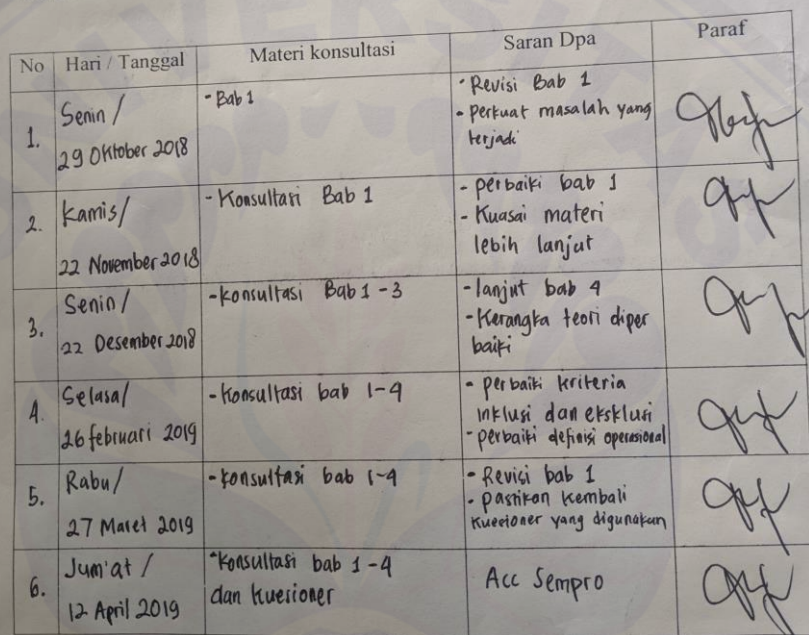 No Hari / Tanggal Materi konsultasi Saran Dpa Paraf
1. Senin / 29 Oktober 2018
- Bab 1
- Revisi Bab 1
- perkuat masalah yang
terjadi
2. Kamis/
22 November 2018
- Konsultasi Bab 1
- perbaiki bab 1
- Kuasai materi
lebih lanjut
3. Senin/
22 Desember 2018
- konsultasi Bab 1-3
- lanjut bab 4
- Kerangka teori diper
baiki
4. Selasa/
26 februari 2019
- Konsultasi bab 1-4
- perbaiki kriteria
inklusi dan eksklusi
- perbaiki definisi operasional
5. Rabu/
27 Maret 2019
- konsultasi bab 1-4
- Revisi bab 1
- pastikan kembali
kuesioner yang digunakan
6. Jum'at /
12 April 2019
- Konsultasi bab 1-4
dan kuesioner
Acc Sempro